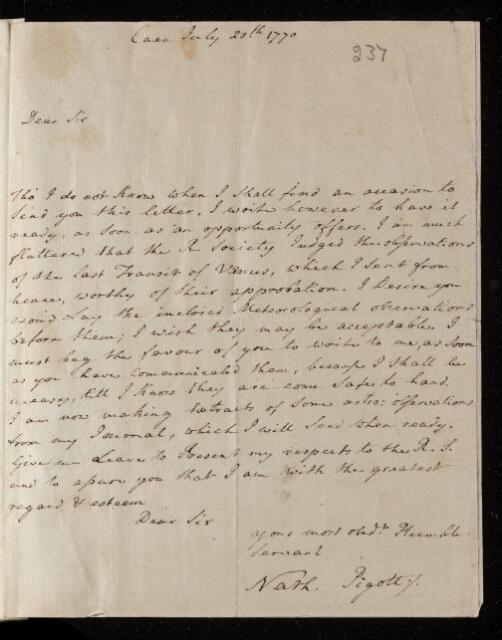 Caen July 20th 1770
237
Dear Sir
Tho' I do not Know when I Shall find an occasion to
Send you this letter, I write however to have it
ready, as soon as an opportunity offers. I am much
flattered that the R. Society Judged the observations
of the last Transit of Venus, which I sent from
hence, worthy of their approbation. I Desire you
wou'd Lay the inclosed Meteorological observations
before them; I wish they may be acceptable. I
must beg the favour of you to write to me, as soon
as you have communicated them, because I shall be
uneasy, till I Know they are come safe to hand.
I am now making Extracts of Some astro: observations
from my Journal, which I will Send when ready.
Give me Leave to Present my respects to the R. S.
and to assure you that I am with the greatest
regard & esteem
Dear Sir
your most obdt. Humble
Servant
Nath. Pigott